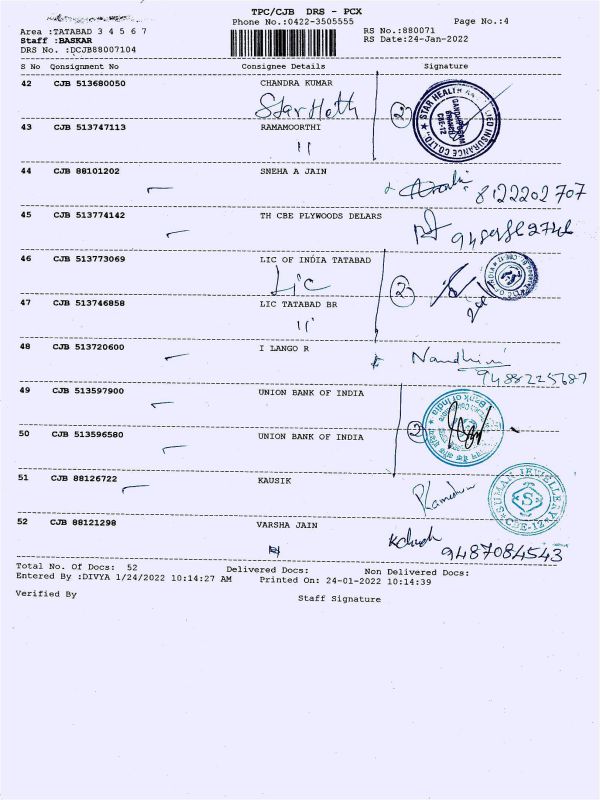 TPC/CJB DRS - PCX
Phone No.:0422-3505555 Page No.:4
Area :TATABAD 3 4 5 6 7 RS No.:880071
Staff :BASKAR RS Date:24-Jan-2022
DRS No. :DCJB88007104
S No Qonsignment No Consignee Details Signature
42 CJB 513680050 CHANDRA KUMAR
Star Helth 2
43 CJB 513747113 RAMAMOORTHI
"
44 CJB 88101202 SNEHA A JAIN
8122202707
45 CJB 513774142 TH CBE PLYWOODS DELARS
46 CJB 513773069 LIC OF INDIA TATABAD
Lic 2
47 CJB 513746858 LIC TATABAD BR
"
48 CJB 513720600 I LANGO R
Nandhini
49 CJB 513597900 UNION BANK OF INDIA
2
50 CJB 513596580 UNION BANK OF INDIA
51 CJB 88126722 KAUSIK
SUMAN JEWELLERY
CBE-12
52 CJB 88121298 VARSHA JAIN
9487084543
Total No. Of Docs: 52 Delivered Docs: Non Delivered Docs:
Entered By :DIVYA 1/24/2022 10:14:27 AM Printed On: 24-01-2022 10:14:39
Verified By Staff Signature